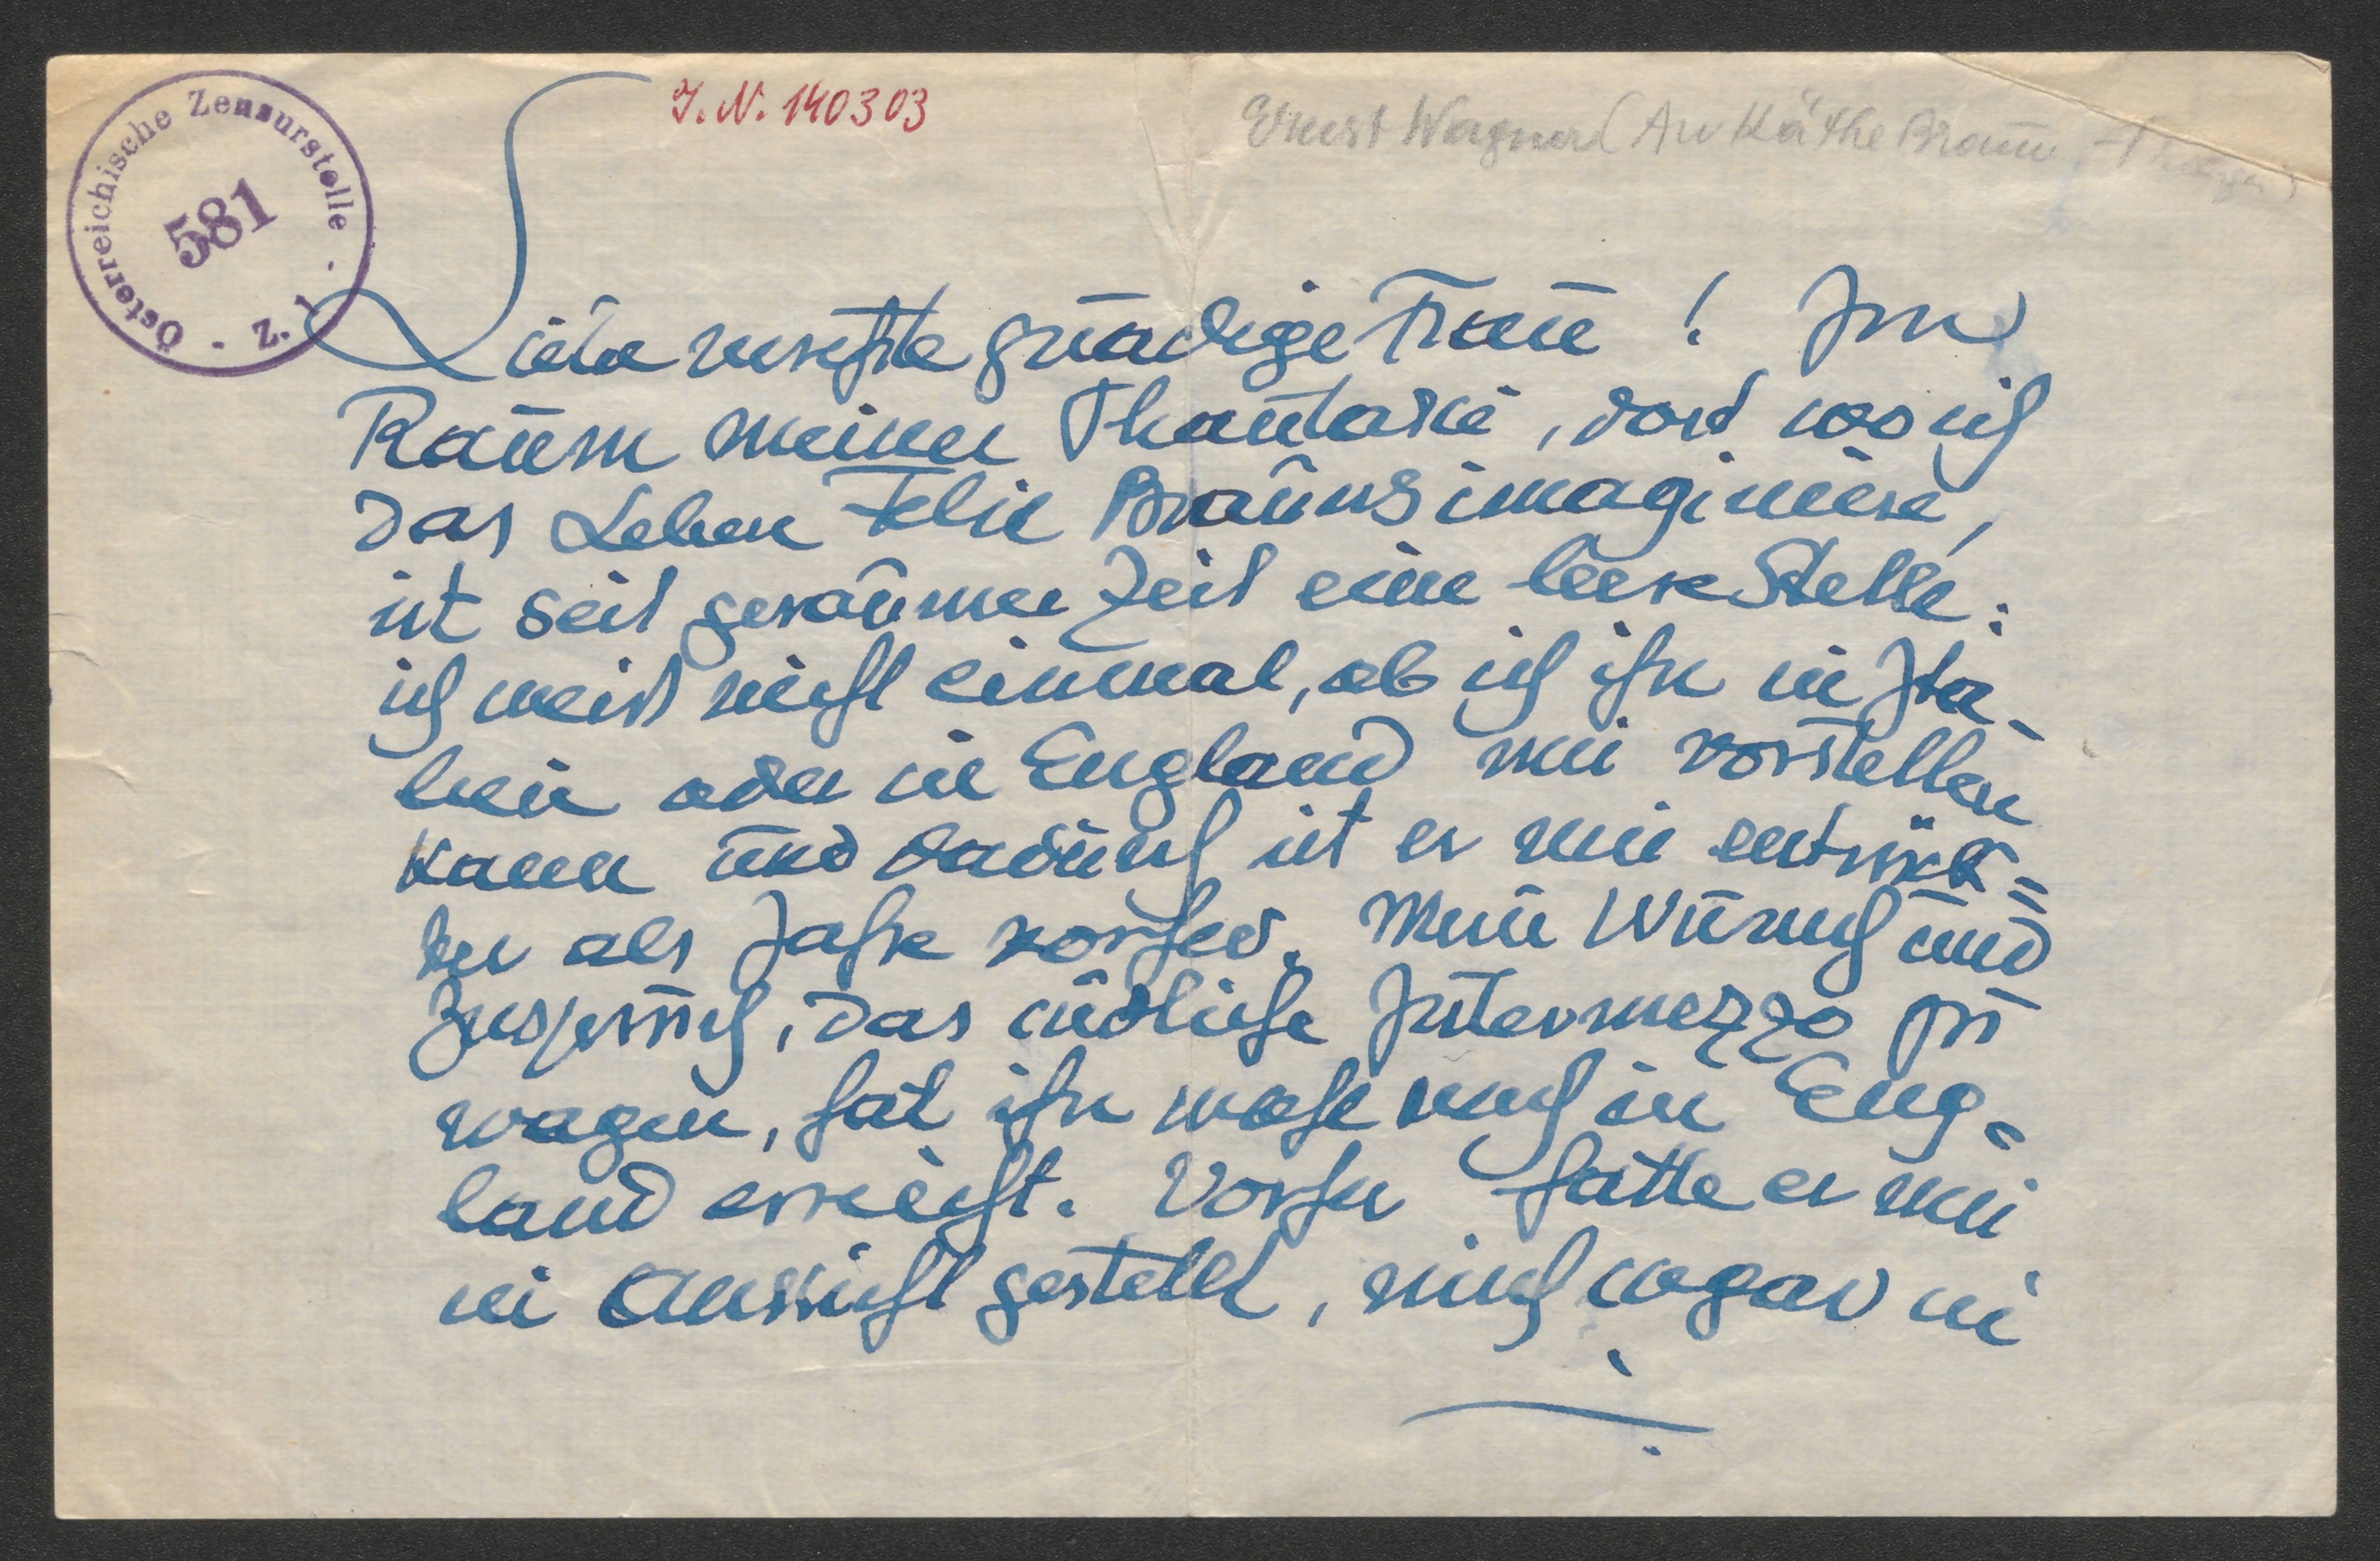 Österreichische Zensurstelle · Z. 1 ·
581
I. N. 140303
Ernst Wagner (An Käthe Braun-Prager)
Liebe verehrte gnädige Frau! Im
Raum meiner Phantasie, dort wo ich
das Leben Felix Brauns imaginiere,
ist seit geraumer Zeit eine leere Stelle:
ich weiß nicht einmal, ob ich ihn in Ita-
lien oder in England mir vorstellen
kann und dadurch ist er mir entrück=
ter als Jahre vorher. Mein Wunsch und
Zuspruch, das südliche Intermezzo zu
wagen, hat ihn wohl noch in Eng-
land erreicht. Vorher hatte er mir
in Aussicht gestellt, mich sogar in